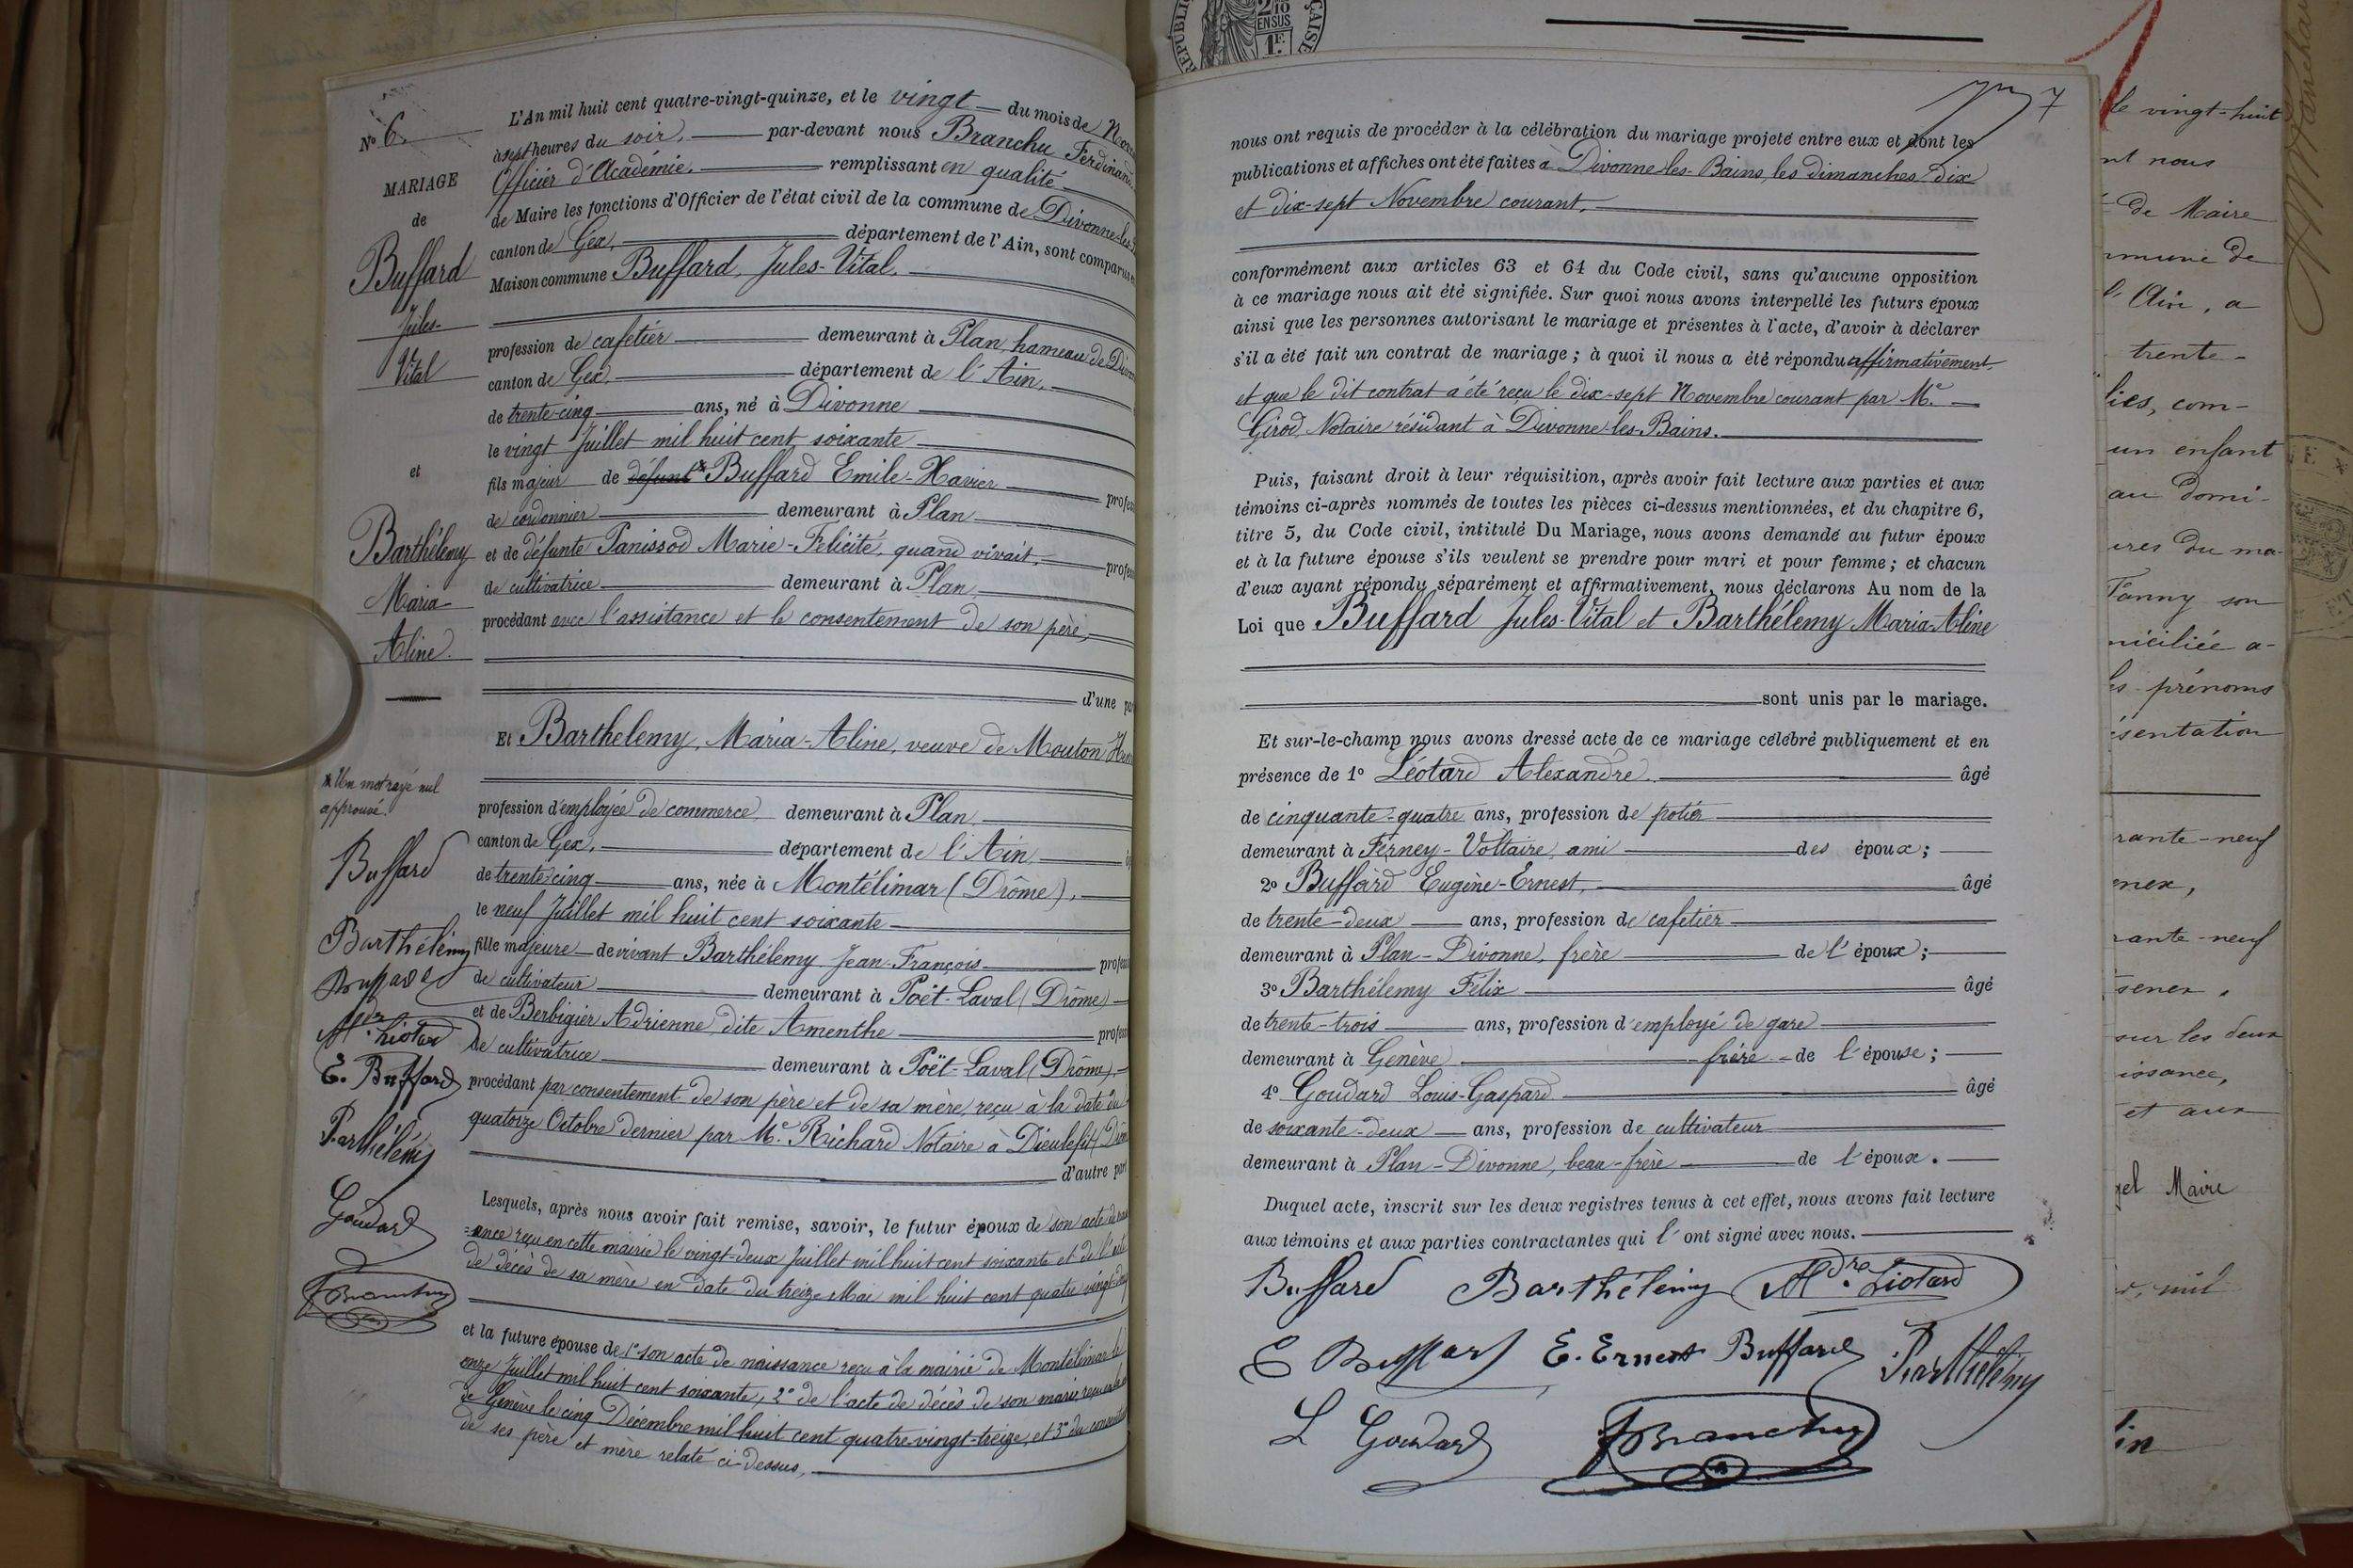 N° 6.
MARIAGE
de
Buffard
Jules-
Vital
et
Barthélemy
Maria-
Aline.
x Un mot rayé nul
approuvé.
Buffard
Barthélémy
Buffard
Liotard
E. Buffard
Barthélémy
Goudard
Branchu
L'An mil huit cent quatre-vingt-quinze, et le vingt du mois de
à sept heures du soir, par-devant nous Branchu Ferdinand,
Officier d'Académie, remplissant en qualité
de Maire les fonctions d'Officier de l'état civil de la commune de Divonne-les-
canton de Gex, département de l'Ain, sont comparus
Maison commune Buffard, Jules-Vital,
profession de cafetier demeurant à Plan, hameau de
canton de Gex, département de l'Ain,
de trente-cinq ans, né à Divonne
le vingt Juillet mil huit cent soixante
fils majeur de défunt x Buffard Emile-Xavier profes
de cordonnier demeurant à Plan
et de défunte Panissod Marie-Félicité, quand vivait, profes
de cultivatrice demeurant à Plan,
procédant avec l'assistance et le consentement de son père,
d'une pa
Et Barthélemy, Maria-Aline, veuve de Mouton
profession d'employée de commerce, demeurant à Plan,
canton de Gex, département de l'Ain
de trente cinq ans, née à Montélimar (Drôme),
le neuf Juillet mil huit cent soixante
fille majeure de vivant Barthélemy Jean-François profess
de cultivateur demeurant à Poët-Laval (Drôme)
et de Berbigier Adrienne, dite Amenthe profess
de cultivatrice demeurant à Poët-Laval (Drôme),
procédant par consentement de son père et de sa mère, reçu à la date du
quatorze Octobre dernier par Me Richard Notaire à Dieulefit
d'autre part
Lesquels, après nous avoir fait remise, savoir, le futur époux de son acte de
=ance reçu en cette mairie le vingt-deux Juillet mil huit cent soixante et de l'acte
de décès de sa mère en date du treize Mai mil huit cent quatre vingt
et la future épouse de 1° son acte de naissance reçu à la mairie de Montélimar le
onze Juillet mil huit cent soixante, 2° de l'acte de décès de son mari, reçu
de Genève le cinq Décembre mil huit cent quatre-vingt-treize, et 3° du
de ses père et mère relaté ci-dessus,
7
nous ont requis de procéder à la célébration du mariage projeté entre eux et dont les
publications et affiches ont été faites à Divonne-les-Bains, les dimanches dix
et dix-sept Novembre courant,
conformément aux articles 63 et 64 du Code civil, sans qu'aucune opposition
à ce mariage nous ait été signifiée. Sur quoi nous avons interpellé les futurs époux
ainsi que les personnes autorisant le mariage et présentes à l'acte, d'avoir à déclarer
s'il a été fait un contrat de mariage ; à quoi il nous a été répondu affirmativement,
et que le dit contrat a été reçu le dix-sept Novembre courant par Me
Girod, Notaire résidant à Divonne-les-Bains.
Puis, faisant droit à leur réquisition, après avoir fait lecture aux parties et aux
témoins ci-après nommés de toutes les pièces ci-dessus mentionnées, et du chapitre 6,
titre 5, du Code civil, intitulé Du Mariage, nous avons demandé au futur époux
et à la future épouse s'ils veulent se prendre pour mari et pour femme ; et chacun
d'eux ayant répondu séparément et affirmativement, nous déclarons Au nom de la
Loi que Buffard Jules-Vital et Barthélemy Maria-Aline
sont unis par le mariage.
Et sur-le-champ nous avons dressé acte de ce mariage célébré publiquement et en
présence de 1° Léotard Alexandre âgé
de cinquante-quatre ans, profession de potier
demeurant à Ferney-Voltaire, ami des époux ;
2° Buffard Eugène-Ernest, âgé
de trente-deux ans, profession de cafetier
demeurant à Plan-Divonne, frère de l'époux ;
3° Barthélemy Félix âgé
de trente-trois ans, profession d'employé de gare
demeurant à Genève frère de l'épouse ;
4° Goudard Louis-Gaspard âgé
de soixante-deux ans, profession de cultivateur
demeurant à Plan-Divonne, beau-frère de l'époux.
Duquel acte, inscrit sur les deux registres tenus à cet effet, nous avons fait lecture
aux témoins et aux parties contractantes qui l'ont signé avec nous.
Buffard Barthélémy Aldre Liotard
E Buffard E. Ernest Buffard Barthélémy
L Goudard Branchu
le vingt-huit
nt nous
de Maire
mune de
l'Ain, a
trente-
lies, com-
un enfant
au domi-
ures du ma-
Fanny son
niciliée a-
es prénoms
ésentation
rante-neuf
enex,
rante-neuf
sur les deux
issance,
et aux
Maire
mil
in